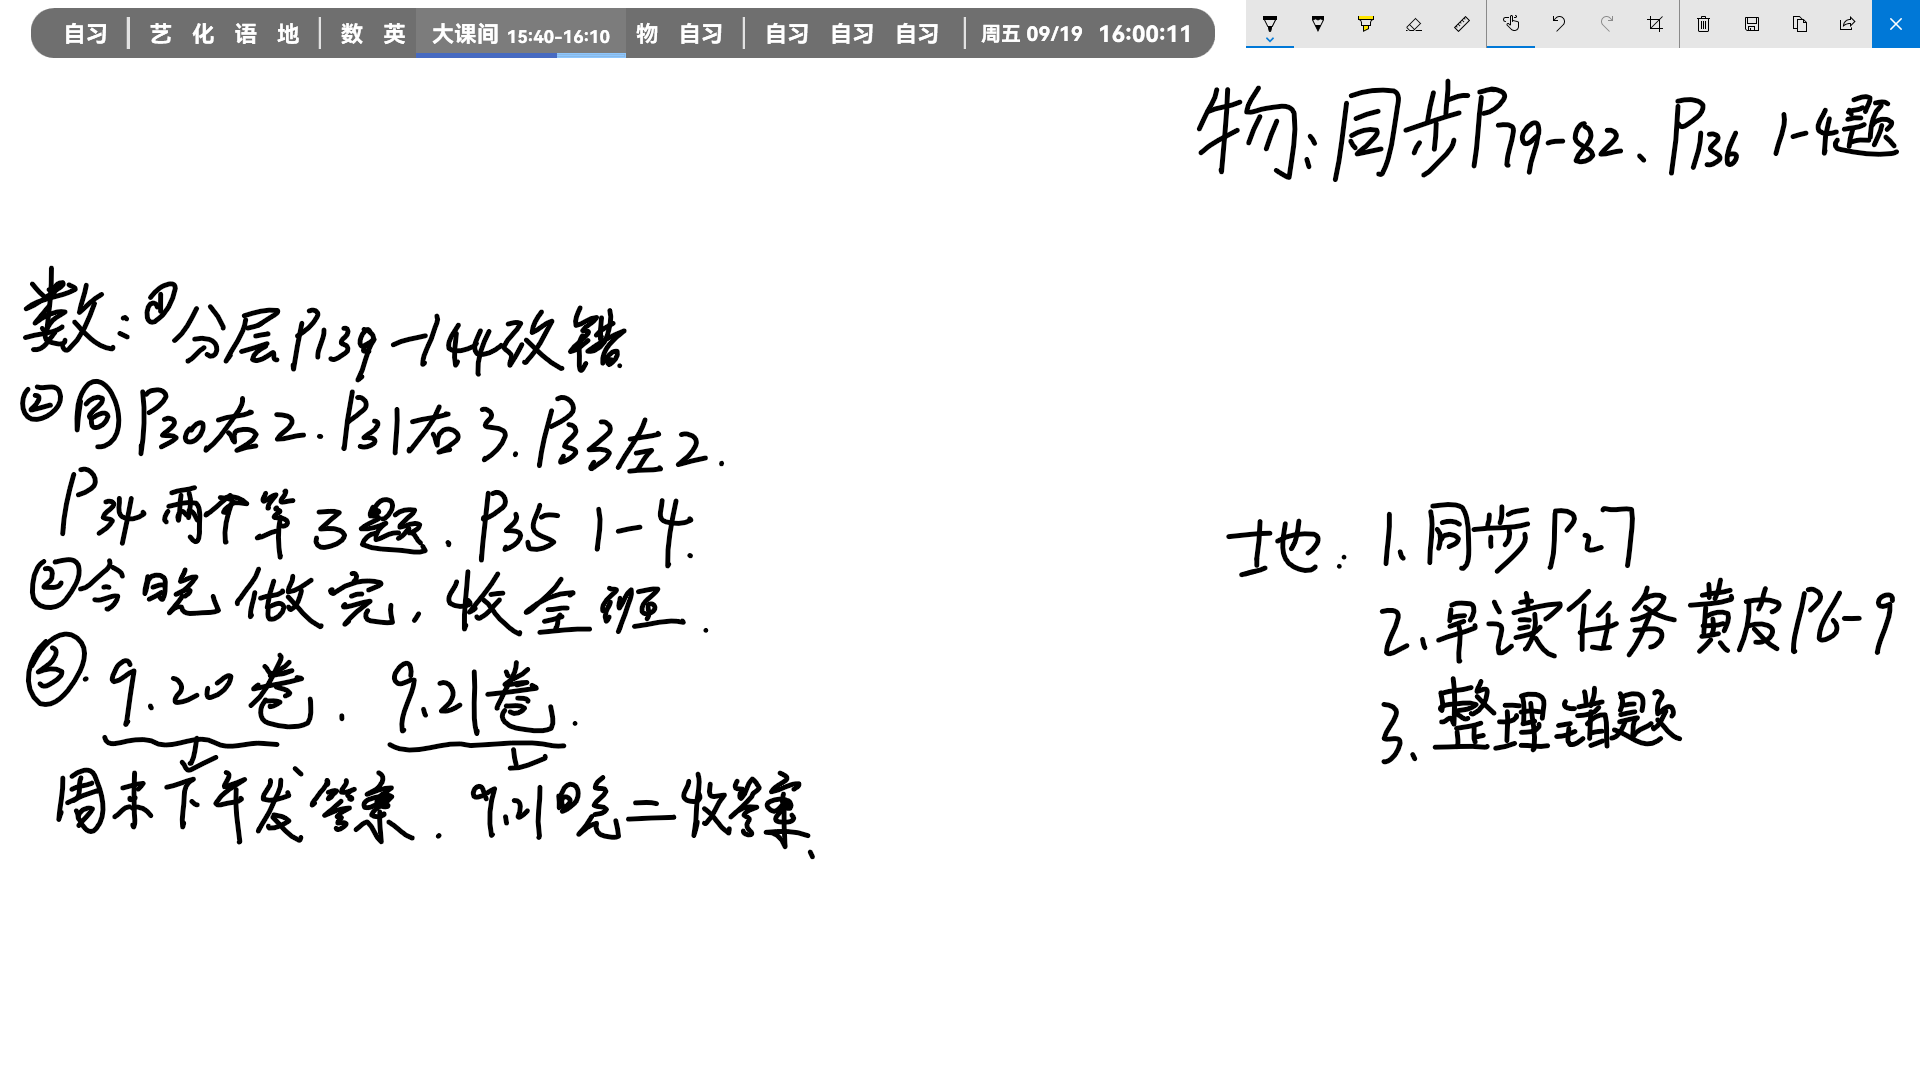 自习 | 艺 化 语 地 | 数 英 大课间 15:40-16:10 物 自习 | 自习 自习 自习 | 周五 09/19 16:00:11
物:同步P79-82、P136 1-4题
数:①分层P139-144改错.
②同P30右2.P31右3.P33左2.
P34两个第3题.P35 1-4.
②今晚做完,收全班.
③.9.20卷.9.21卷.
周末下午发答案.9.21晚二收答案.
地:1、同步P27
2、早读任务黄皮P6-9
3、整理错题